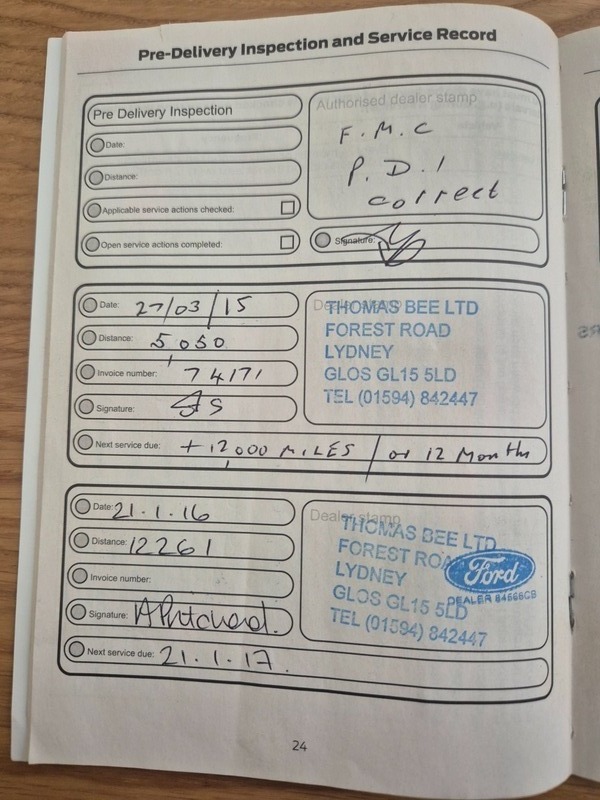 Pre-Delivery Inspection and Service Record
Pre Delivery Inspection
Date:
Distance:
Applicable service actions checked:
Open service actions completed:
Authorised dealer stamp
F.M.C
P.D.I
correct
Signature:
Date: 27/03/15
Distance: 5,050
Invoice number: 74171
Signature:
Next service due: + 12,000 MILES / or 12 Months
Dealer stamp
THOMAS BEE LTD
FOREST ROAD
LYDNEY
GLOS GL15 5LD
TEL (01594) 842447
Date: 21.1.16
Distance: 12261
Invoice number:
Signature: A Pritchard.
Next service due: 21.1.17.
Dealer stamp
THOMAS BEE LTD
FOREST ROAD
LYDNEY
GLOS GL15 5LD
TEL (01594) 842447
Ford
24